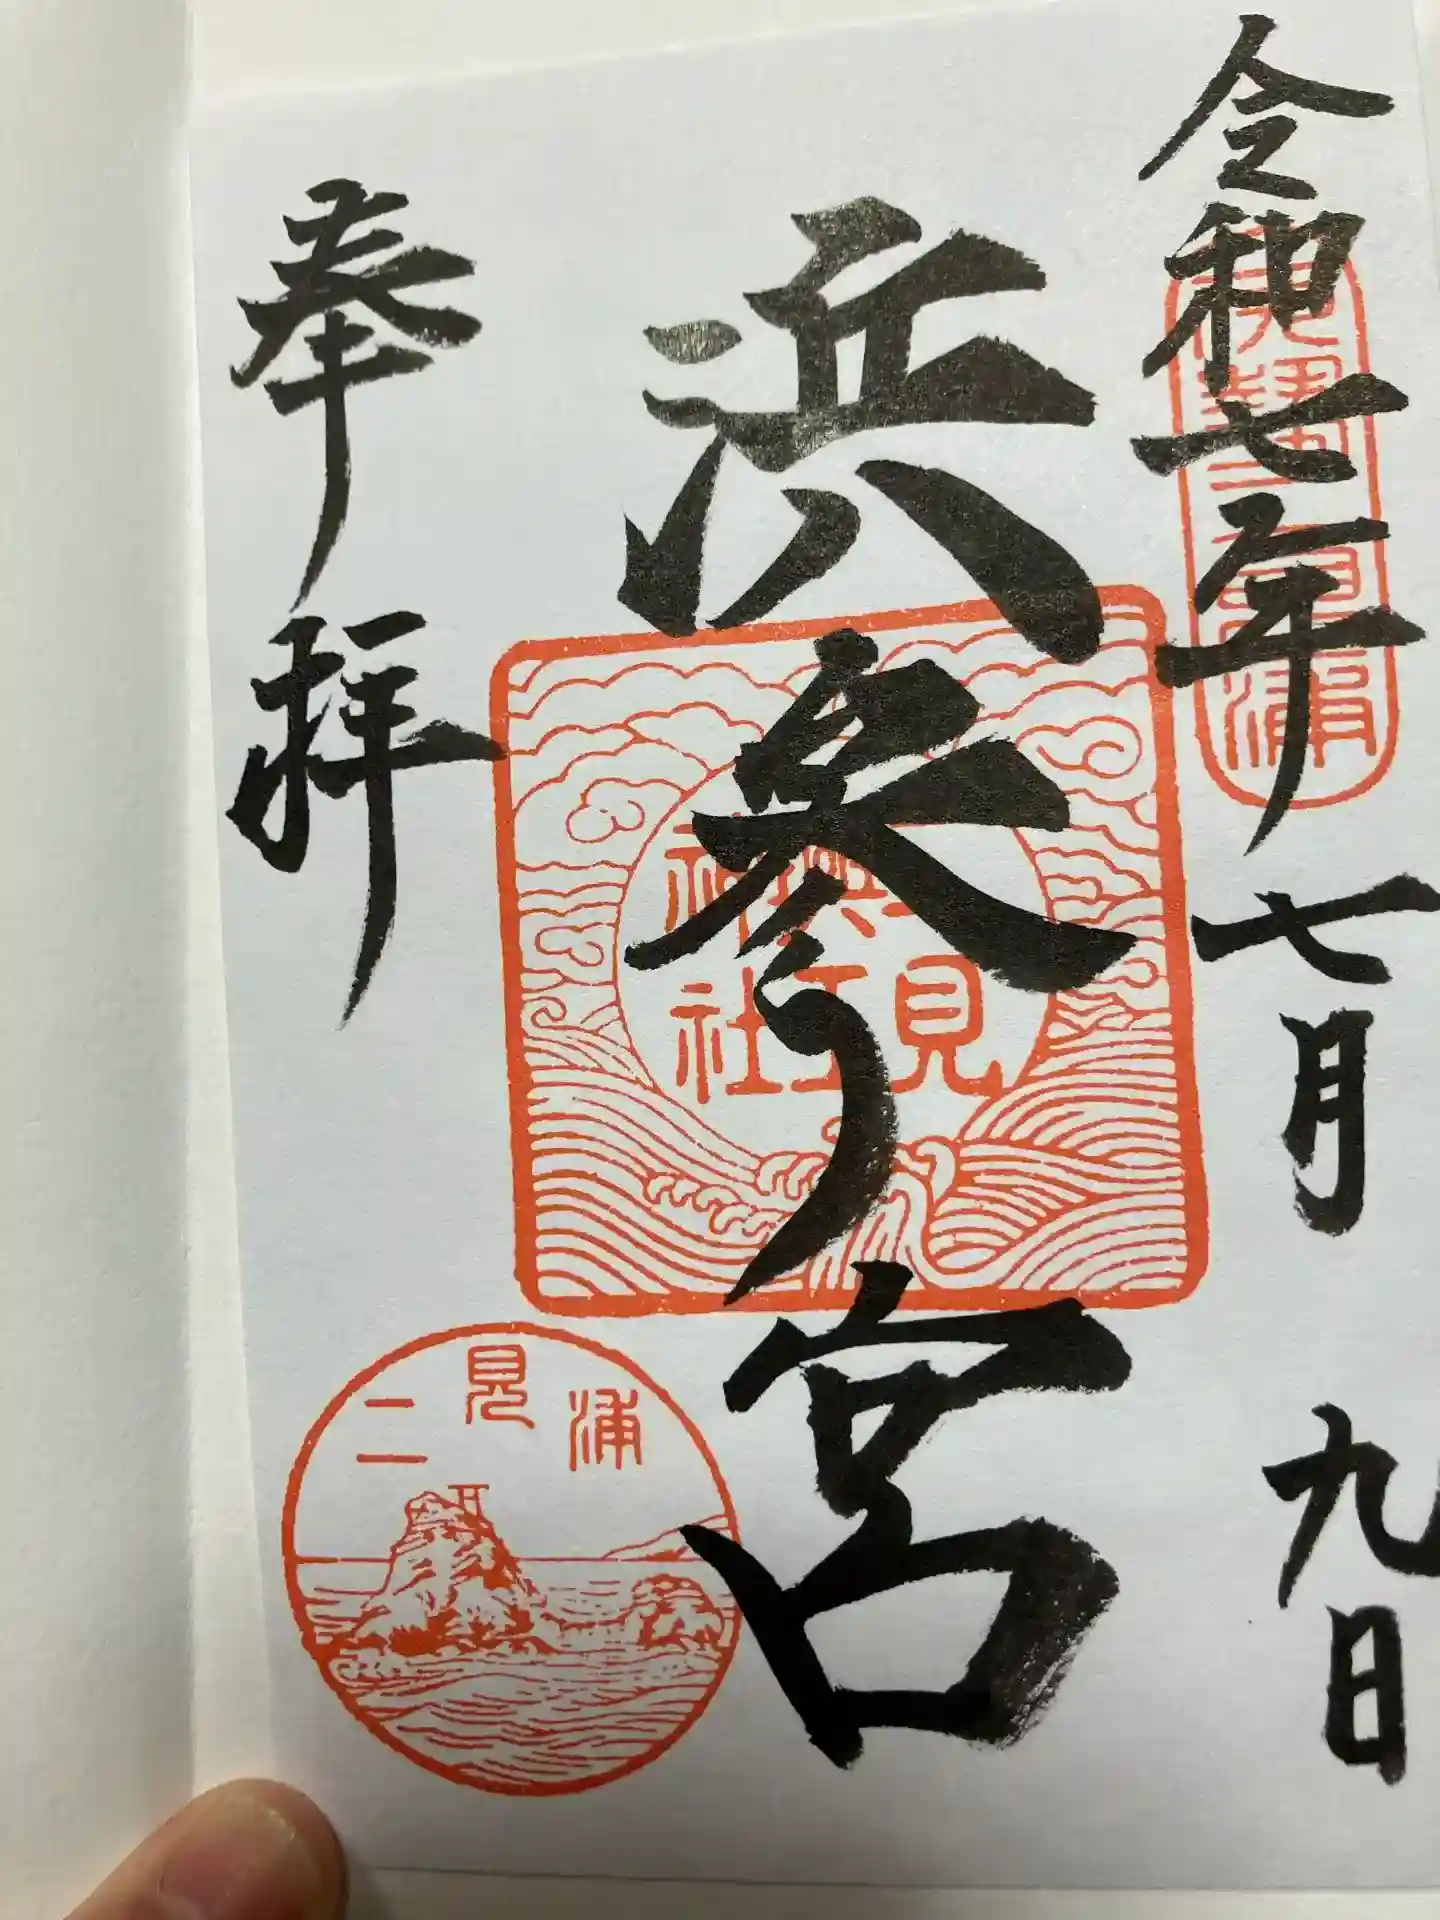 令和七年七月九日
伊勢二見浦
浜参宮
二見興玉神社
奉拝
二見浦